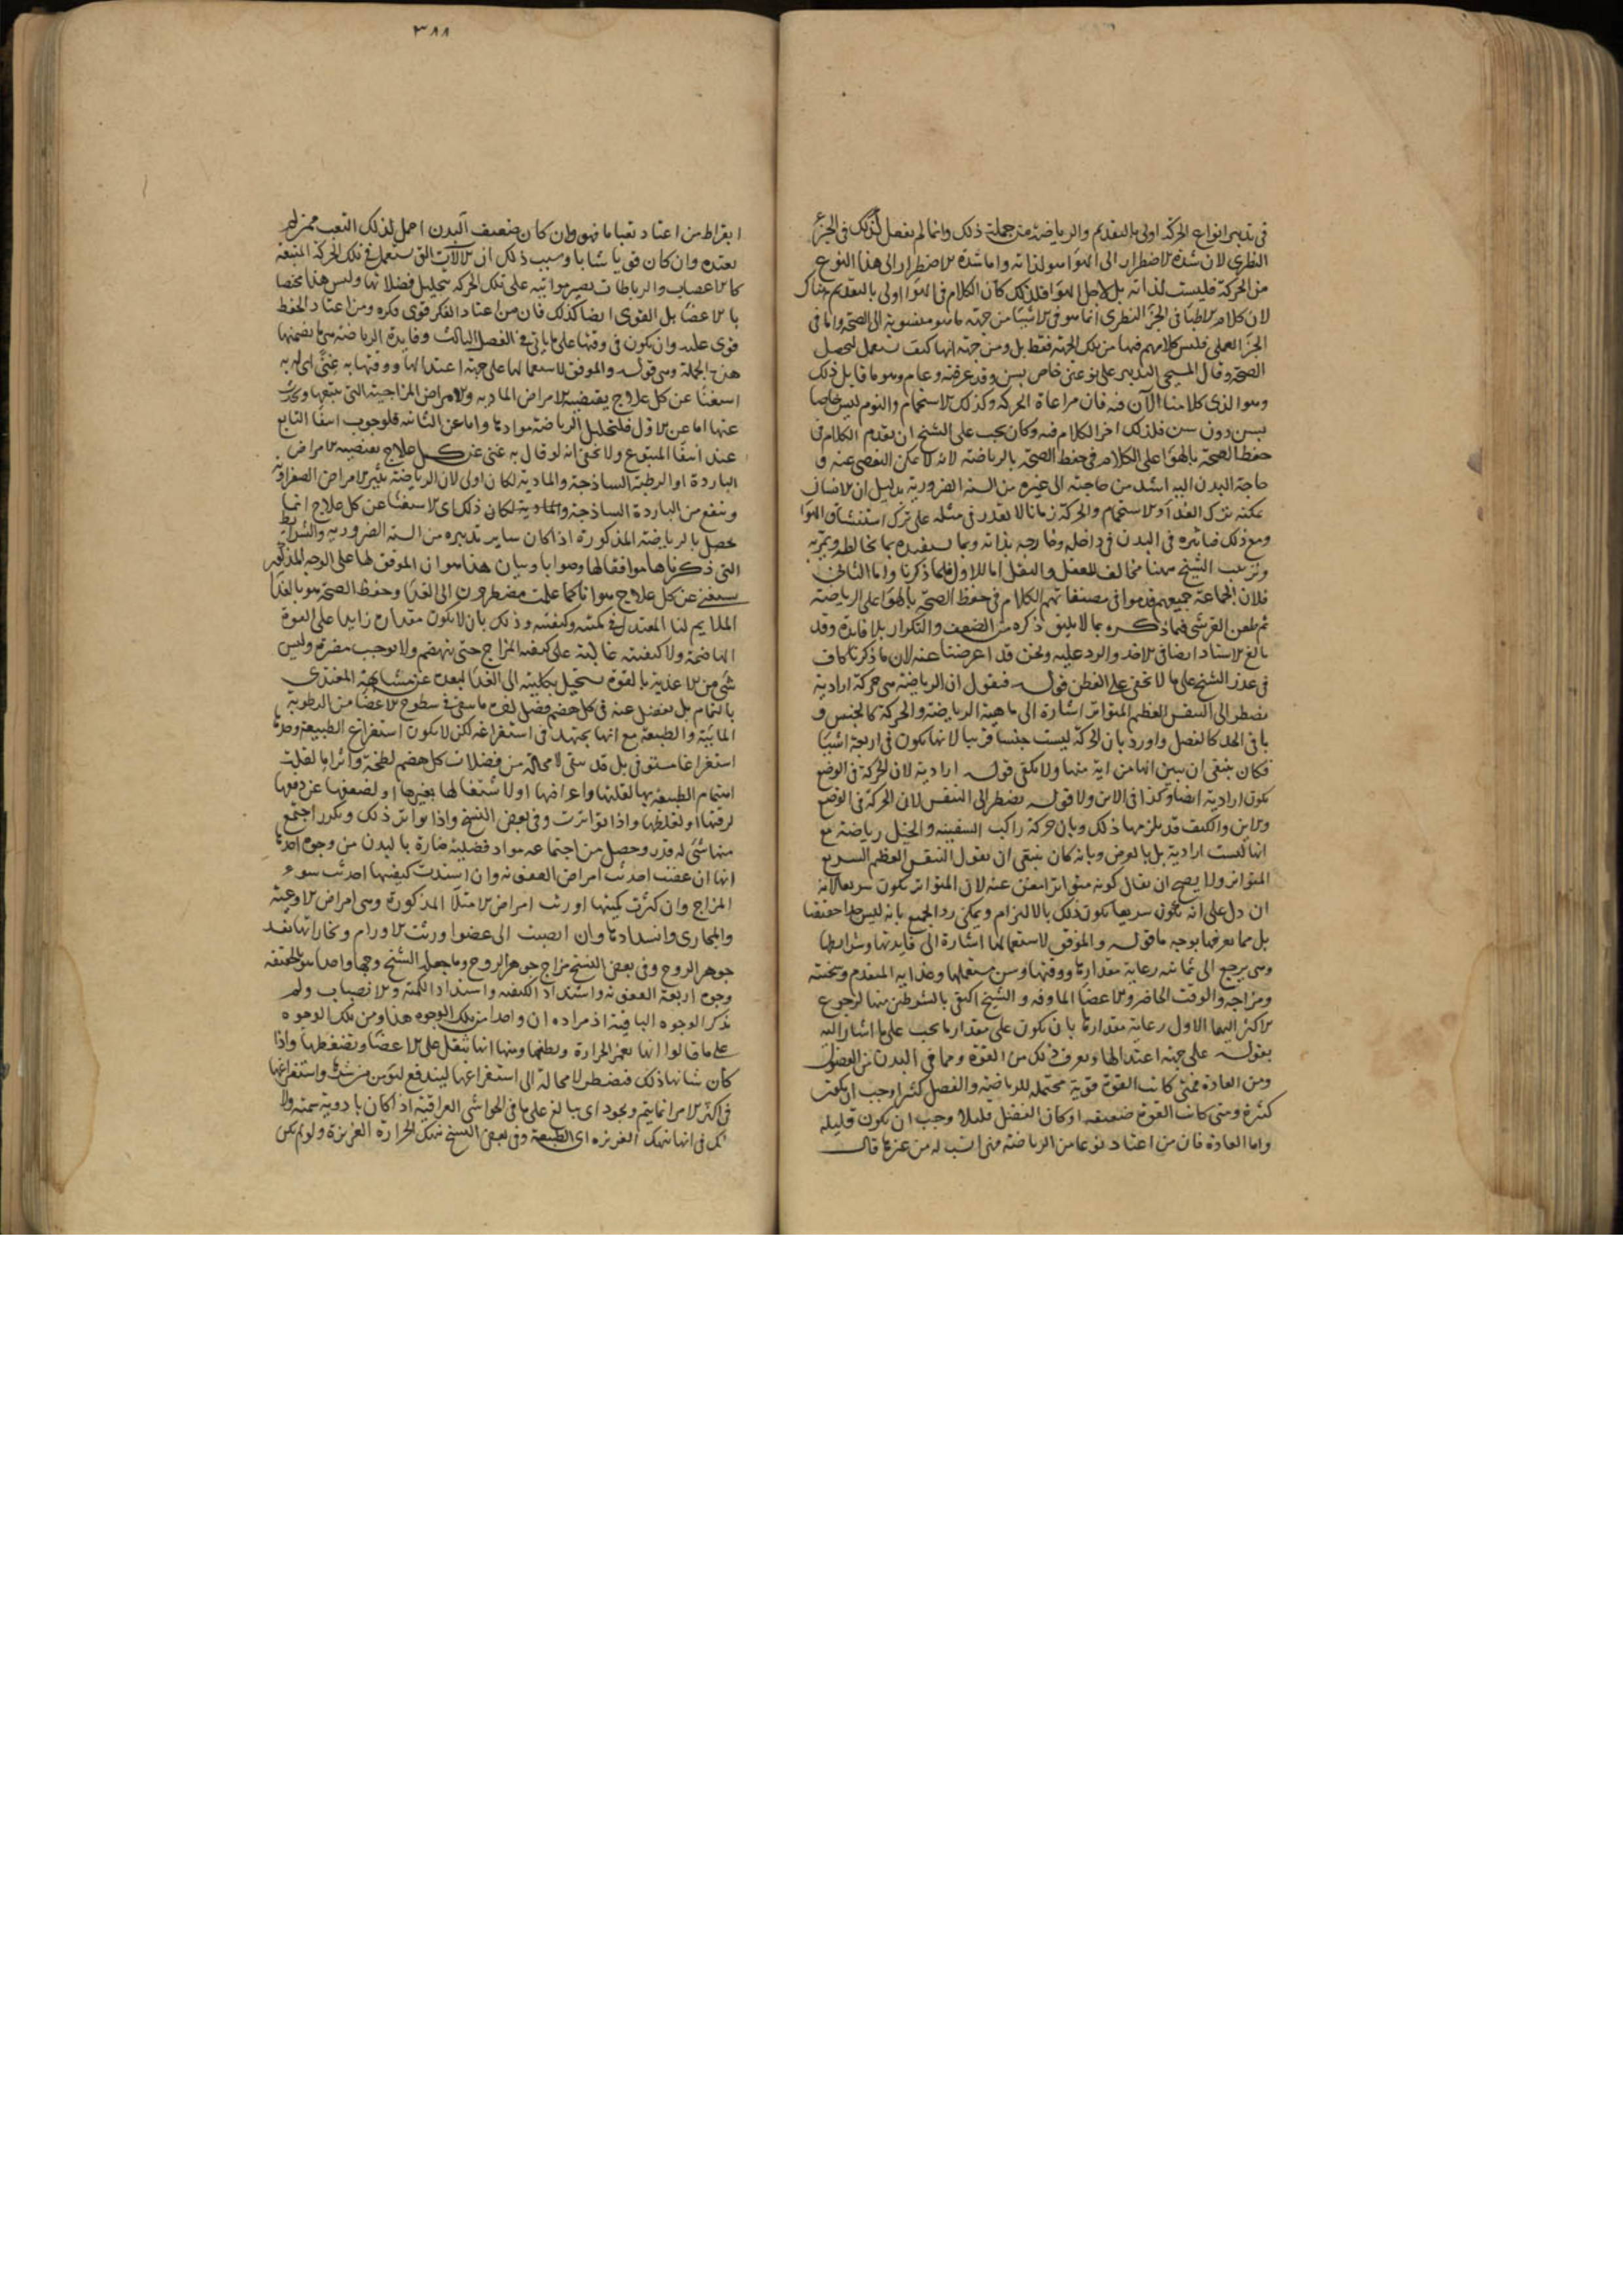 في تدبير انواع الحركة اولى بالتقديم والرياضة من جملة ذلك وانما لم يفعل كذلك في الجزء
النظري لان شدة الاضطرار الى الهوا هو لذاته واما شدة الاضطرار الى هذا النوع
من الحركة فليست لذاته بل لاجل الهوا فلذلك كان الكلام في الهوا اولى بالتقديم هناك
لان كلام الاطبا في الجزء النظري انما هو في الاشيا من جهة ما هو منسوبة الى الصحة واما في
الجزء العملي فليس كلامهم فيها من تلك الجهة فقط بل ومن جهة انها كيف تستعمل لتحصل
الصحة وقال المسيحي التدبير على نوعين خاص بسن وقد عرفته وعام وهو ما قابل ذلك
وهو الذي كلامنا الآن فيه فان مراعاة الحركة وكذلك الاستحمام والنوم ليس خاصا
بسن دون سن فلذلك اخر الكلام فيه وكان يجب على الشيخ ان يقدم الكلام في
حفظ الصحة بالهوا على الكلام في حفظ الصحة بالرياضة لانه لا يمكن التفصي عنه و
حاجة البدن اليه اشد من حاجته الى غيره من الستة الضرورية بدليل ان الانسان
يمكنه ترك الغذا والاستحمام والحركة زمانا لا يقدر في مثله على ترك استنشاق الهوا
ومع ذلك فتاثيره في البدن في داخله وخارجه بذاته وبما يستفيده بما يخالطه ويمر به
وترتيب الشيخ ههنا مخالف للعقل والنقل اما الاول فلما ذكرنا واما الثاني
فلان الجماعة جميعهم قدموا في مصنفاتهم الكلام في حفظ الصحة بالهوا على الرياضة
ثم طعن القرشي فيما ذكره بما لا يليق ذكره من الضعف والتكرار بلا فائدة وقد
بالغ الاستاد ايضا في الاخذ والرد عليه ونحن قد اعرضنا عنه لان ما ذكرنا كاف
في عذر الشيخ على ما لا يخفى على الفطن قوله فنقول ان الرياضة هي حركة ارادية
تضطر الى التنفس العظيم المتواتر اشارة الى ماهية الرياضة والحركة كالجنس و
باقي الحد كالفصل واورد بان الحركة ليست جنسا قريبا لانها تكون في اربعة اشيا
فكان ينبغي ان يبين انها من اية منها ولا يكفي قوله ارادية لان الحركة في الوضع
تكون ارادية ايضا وكذا في الاين ولا قوله تضطر الى التنفس لان الحركة في الوضع
والاين والكيف قد يلزمها ذلك وبان حركة راكب السفينة والخيل رياضة مع
انها ليست ارادية بل بالعرض وبانه كان ينبغي ان يقول التنفس العظيم السريع
المتواتر ولا يصح ان يقال كونه متواترا مغن عنه لان المتواتر يكون سريعا لانه
ان دل على انه يكون سريعا يكون ذلك بالالتزام ويمكن رد الجميع بانه ليس حدا حقيقيا
بل مما يعرفها بوجه ما قوله والموفق لاستعمالها اشارة الى فايدتها وشرايطها
وهي يرجع الى ثمانية رعاية مقدارها ووقتها وسن مستعملها وغذايه المتقدم وسحنته
ومزاجه والوقت الحاضر والاعضا الماوفة والشيخ اكتفى بالشرطين منها لرجوع
الاكثر اليهما الاول رعاية مقدارها بان يكون على مقدار ما يجب على ما اشار اليه
بقوله على جهة اعتدالها ويعرف ذلك من القوة ومما في البدن من الفضول
ومن العادة فمتى كانت القوة قوية محتملة للرياضة والفضل كثيرا وجب ان يكون
كثيرة ومتى كانت القوة ضعيفة او كان الفضل قليلا وجب ان تكون قليلة
واما العادة فان من اعتاد نوعا من الرياضة فهي انسب له من غيرها قال
٣٨٨
ابقراط من اعتاد تعبا ما فهو وان كان ضعيف البدن احمل لذلك التعب ممن لم
يعتده وان كان قويا شابا وسبب ذلك ان الآلات التي تستعمل في تلك الحركة المتعبة
كالاعصاب والرباطات تصير مواتية على تلك الحركة بتحليل فضلاتها وليس هذا مختصا
بالاعضا بل القوى ايضا كذلك فان من اعتاد الفكر قوى فكره ومن اعتاد الحفظ
قوى عليه وان يكون في وقتها على ما ياتي في الفصل الثالث وفايدة الرياضة هي ما تضمنها
هذه الجملة وهي قوله والموفق لاستعمالها على جهة اعتدالها ووقتها به غنى اي له به
استغنا عن كل علاج يقتضيه الامراض المادية والامراض المزاجية التي تتبعها وتحدث
عنها اما عن الاول فلتحليل الرياضة موادها واما عن الثانية فلوجوب انتفا التابع
عند انتفا المتبوع ولا يخفى انه لو قال به غنى عن كل علاج تقتضيه الامراض
الباردة او الرطبة الساذجة والمادية لكان اولى لان الرياضة تثير الامراض الصفراوية
وتنفع من الباردة الساذجة والمادية لكان ذلك اي الاستغنا عن كل علاج انما
يحصل بالرياضة المذكورة اذا كان ساير تدبيره من الستة الضرورية والشرايط
التي ذكرناها موافقا لها وصوابا وبيان هذا هو ان الموفق لها على الوجه المذكور
يستغنى عن كل علاج هو انا كما علمت مضطرون الى الغذا وحفظ الصحة هو بالغذا
الملايم لنا المعتدل في كميته وكيفيته وذلك بان لا يكون مقداره زايدا على القوة
الهاضمة ولا كيفيته غالبة على كيفية المزاج حتى ينهضم ولا يوجب مضرة وليس
شي من الاغذية بالقوة يستحيل بكليته الى الغذا لبعده عن مشابهة المغتذي
بالتمام بل يفضل عنه في كل هضم فضل لطف ما يبقى في سطوح الاعضا من الرطوبة
المائية والطبيعة مع انها تجتهد في استفراغه لكن لا يكون استفراغ الطبيعة وحدها
استفراغا مستوفى بل قد يبقى لا محالة من فضلات كل هضم لطخة واثر اما لقلة
اهتمام الطبيعة بها لقلتها واعراضها او لاشتغالها بغيرها او لضعفها عن دفعها
لرقتها او لغلظها واذا تواترت وفي بعض النسخ واذا تواتر ذلك وتكرر اجتمع
منها شي له قدر وحصل من اجتماعه مواد فضلية ضارة بالبدن من وجوه احدها
انها ان عفنت احدثت امراض العفونة وان اشتدت كيفيتها احدثت سوء
المزاج وان كثرت كميتها اورثت امراض الامتلا المذكورة وهي امراض الاوعية
والمجاري وانسدادها وان انصبت الى عضو اورثت الاورام وبخاراتها تفسد
جوهر الروح وفي بعض النسخ مزاج جوهر الروح وما جعله الشيخ وجها واحدا هو بالحقيقة
وجوه اربعة العفونة واشتداد الكيفية واشتداد الكمية والانصباب ولم
يذكر الوجوه الباقية اذ مراده ان واحدا من تلك الوجوه هذا ومن تلك الوجوه
على ما قالوا انها تغمر الحرارة وتطفيها ومنها انها تثقل على الاعضا وتضغطها واذا
كان شانها ذلك فنضطر لا محالة الى استفراغها ليندفع ليومن من شرها واستفراغها
في اكثر الامر انما يتم ويجود اي يبالغ على ما في الحواشي العراقية اذا كان بادوية سمية ولا
شك في انها تنهك الغريزة اي الطبيعة وفي بعض النسخ تنهك الحرارة الغريزة ولو لم تكن